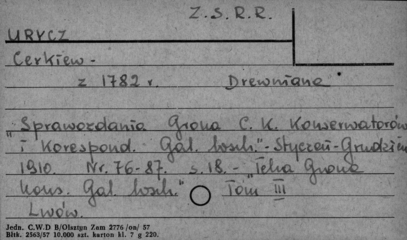 Z.S.R.R.
URYCZ
Cerkiew -
z 1782 r. Drewniana
"Sprawozdania Grona C. K. Konserwatorów
i Korespond. Gal. wsch." - Styczeń - Grudzień
1910. Nr. 76-87. s. 18. - Teka Grona
Kons. Gal. wsch." Tom III
Lwów.
Jedn. C.W.D B/Olsztyn Zam 2776/on/ 57
Bltk. 2563/57 10.000 szt. karton kl. 7 g 220.